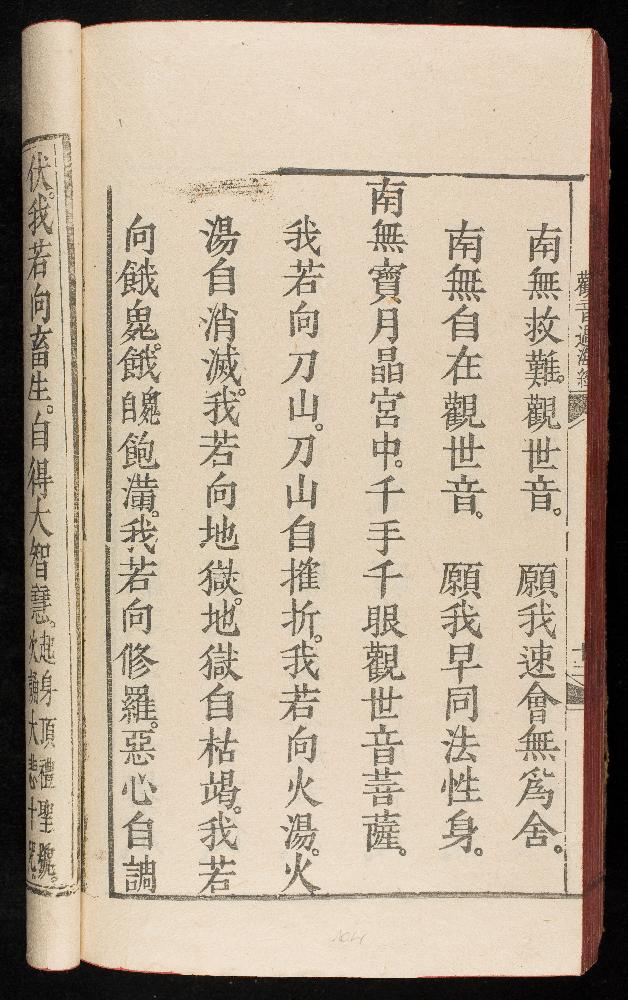 南無救難。觀世音。 願我速會無爲舍。
南無自在觀世音。 願我早同法性身。
南無寶月晶宮中。千手千眼觀世音菩薩。
我若向刀山。刀山自摧折。我若向火湯。火
湯自消滅。我若向地獄。地獄自枯竭。我若
向餓鬼。餓鬼自飽滿。我若向修羅。惡心自調
伏。我若向畜生。自得大智慧。起身頂禮聖號。
次誦大悲十